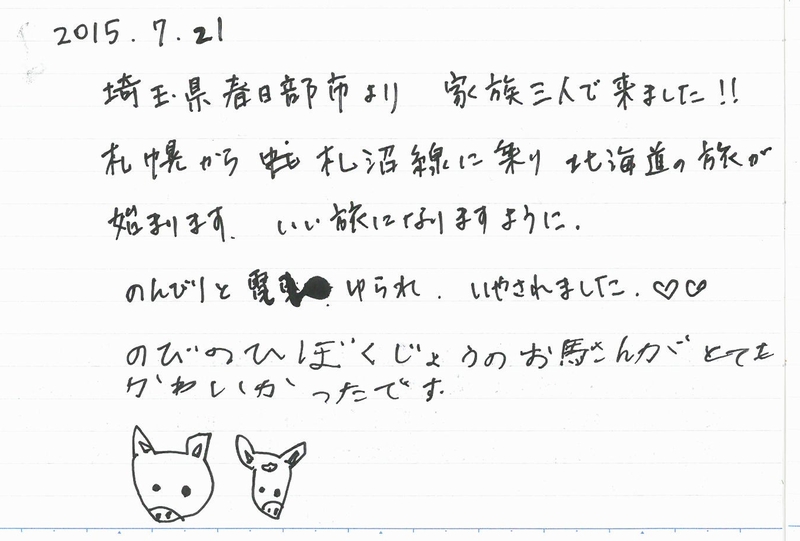 2015.7.21
埼玉県春日部市より 家族三人で来ました!!
札幌から 札沼線に乗り 北海道の旅が
始まります. いい旅になりますように.
のんびりと電車 ゆられ. いやされました.♡♡
のびのびぼくじょうのお馬さんが とても
かわいかったです.